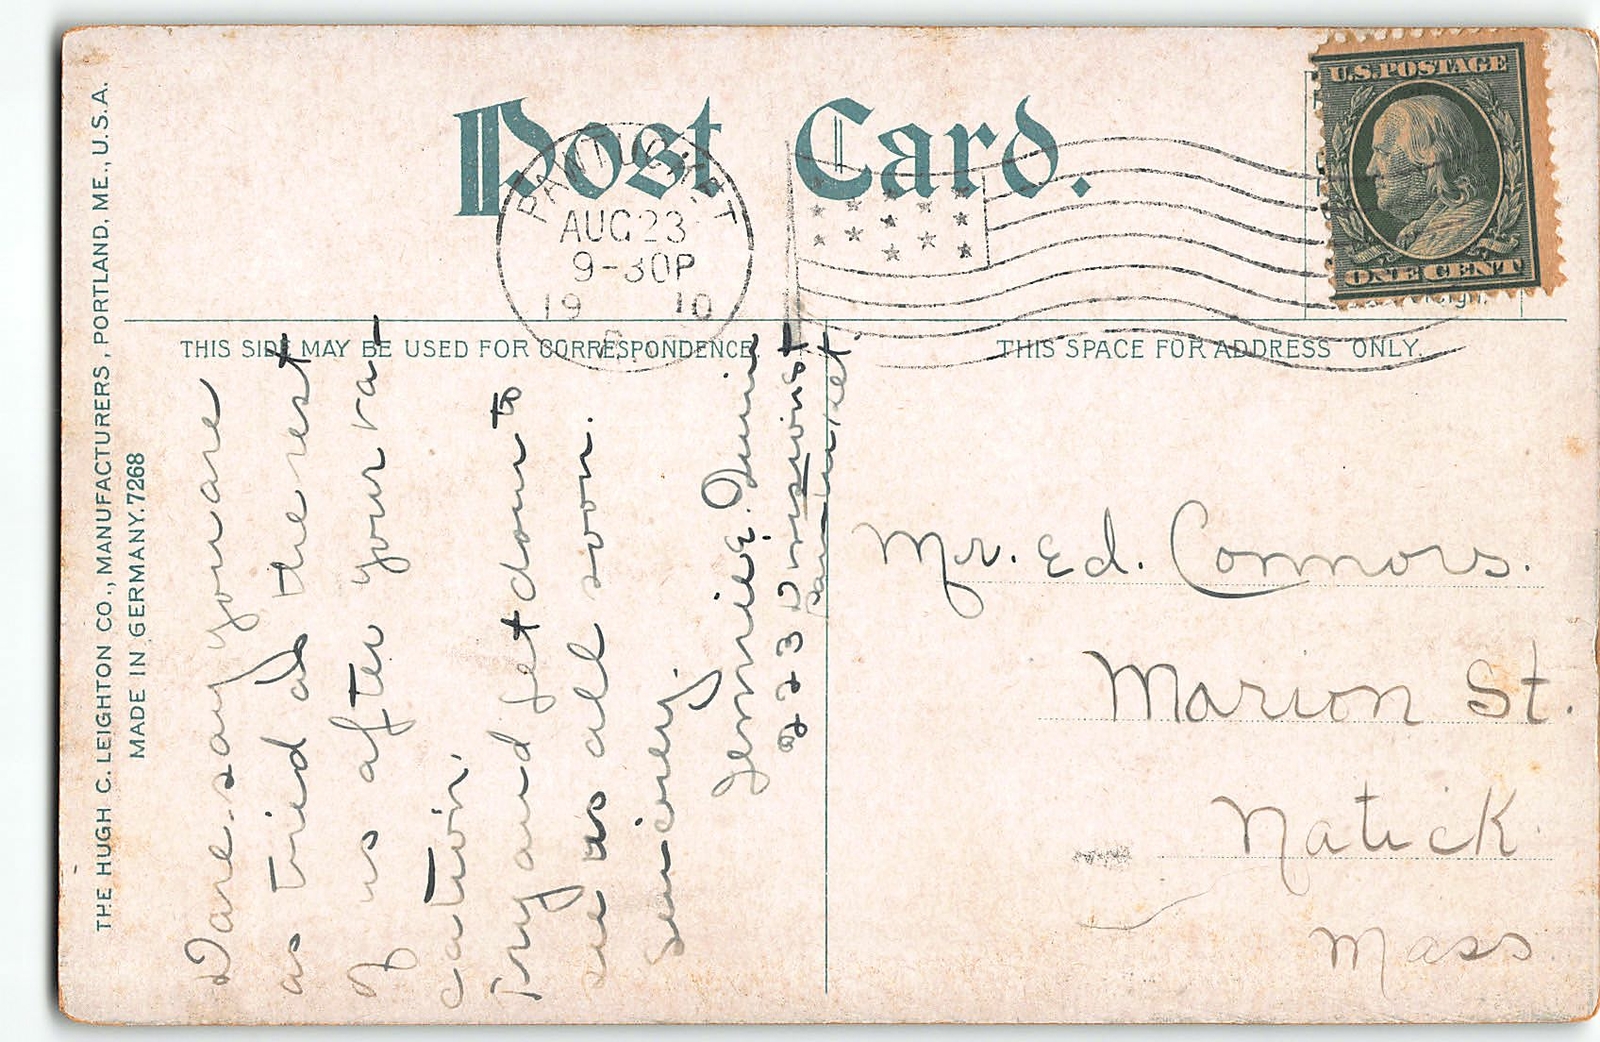 Post Card.
U.S. POSTAGE
ONE CENT
PAWTUCKET
AUG 23
9-30P
1910
R.I.
THIS SIDE MAY BE USED FOR CORRESPONDENCE.
THIS SPACE FOR ADDRESS ONLY.
THE HUGH C. LEIGHTON CO., MANUFACTURERS, PORTLAND, ME., U.S.A.
MADE IN GERMANY. 7268
Dare say you are
as tired as the rest
of us after your va-
cation.
Try and get down to
see us all soon.
Sincerely
Jennie E.
223 Division St
Pawtucket
Mr. Ed. Connors.
Marion St.
Natick
Mass